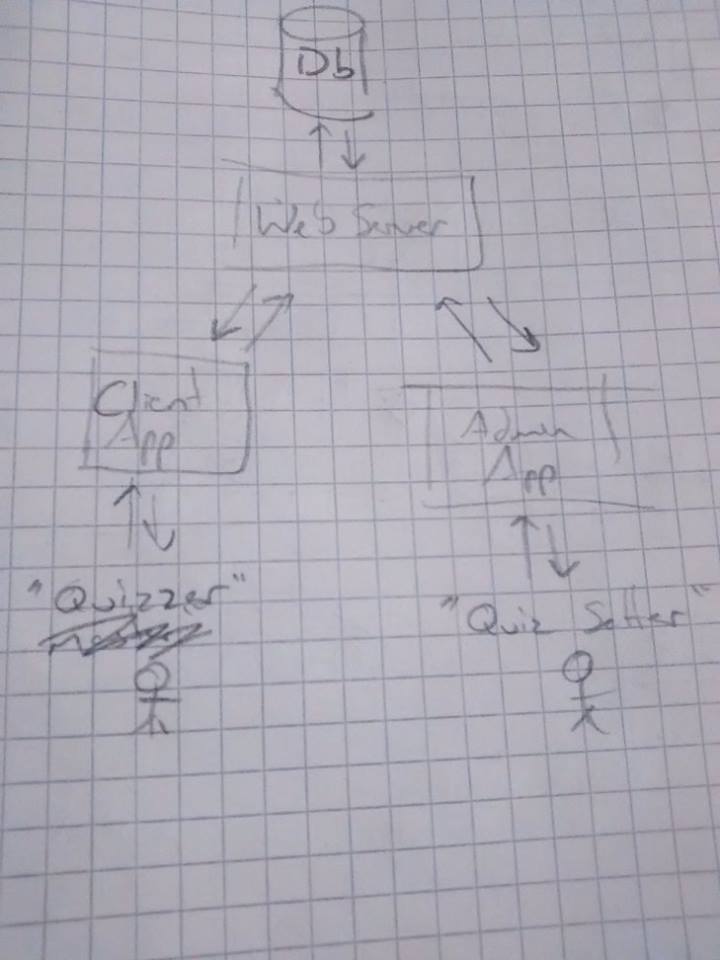 Db
Web Server
Client
App
Admin
App
"Quizzer"
"Quiz Setter"